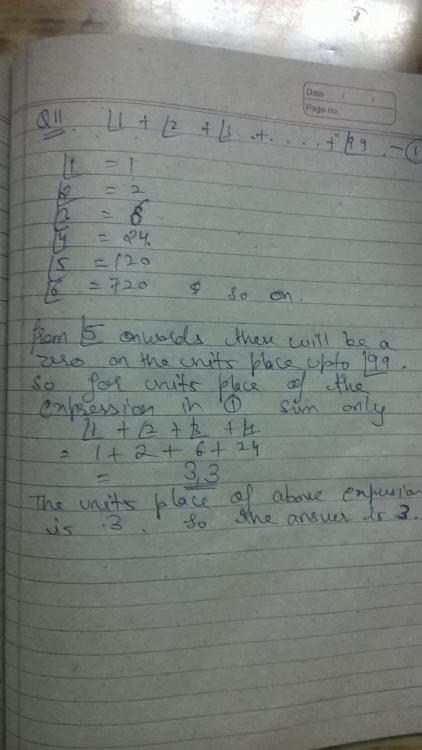 Date / /
Page no.
Q11. ⌊1 + ⌊2 + ⌊3 + .... + ⌊99 . - ①
⌊1 = 1
⌊2 = 2
⌊3 = 6
⌊4 = 24.
⌊5 = 120
⌊6 = 720 & so on.
from ⌊5 onwards there will be a
zero on the units place upto ⌊99.
so for units place of the
expression in ① sum only
⌊1 + ⌊2 + ⌊3 + ⌊4
= 1 + 2 + 6 + 24
= 33
The units place of above expression
is 3. So the answer is 3.